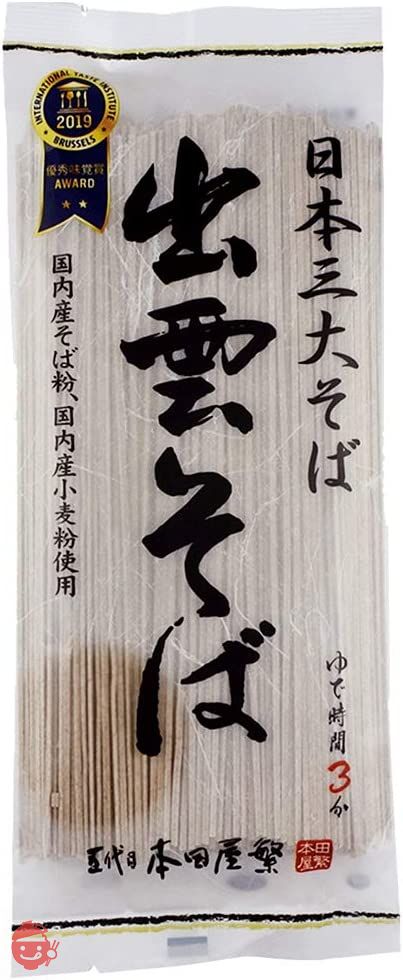 日本三大そば
出雲そば
国内産そば粉、国内産小麦粉使用
INTERNATIONAL TASTE INSTITUTE
2019
BRUSSELS
優秀味覚賞
AWARD
ゆで時間3分
五代目 本田屋繁
田繁
本屋